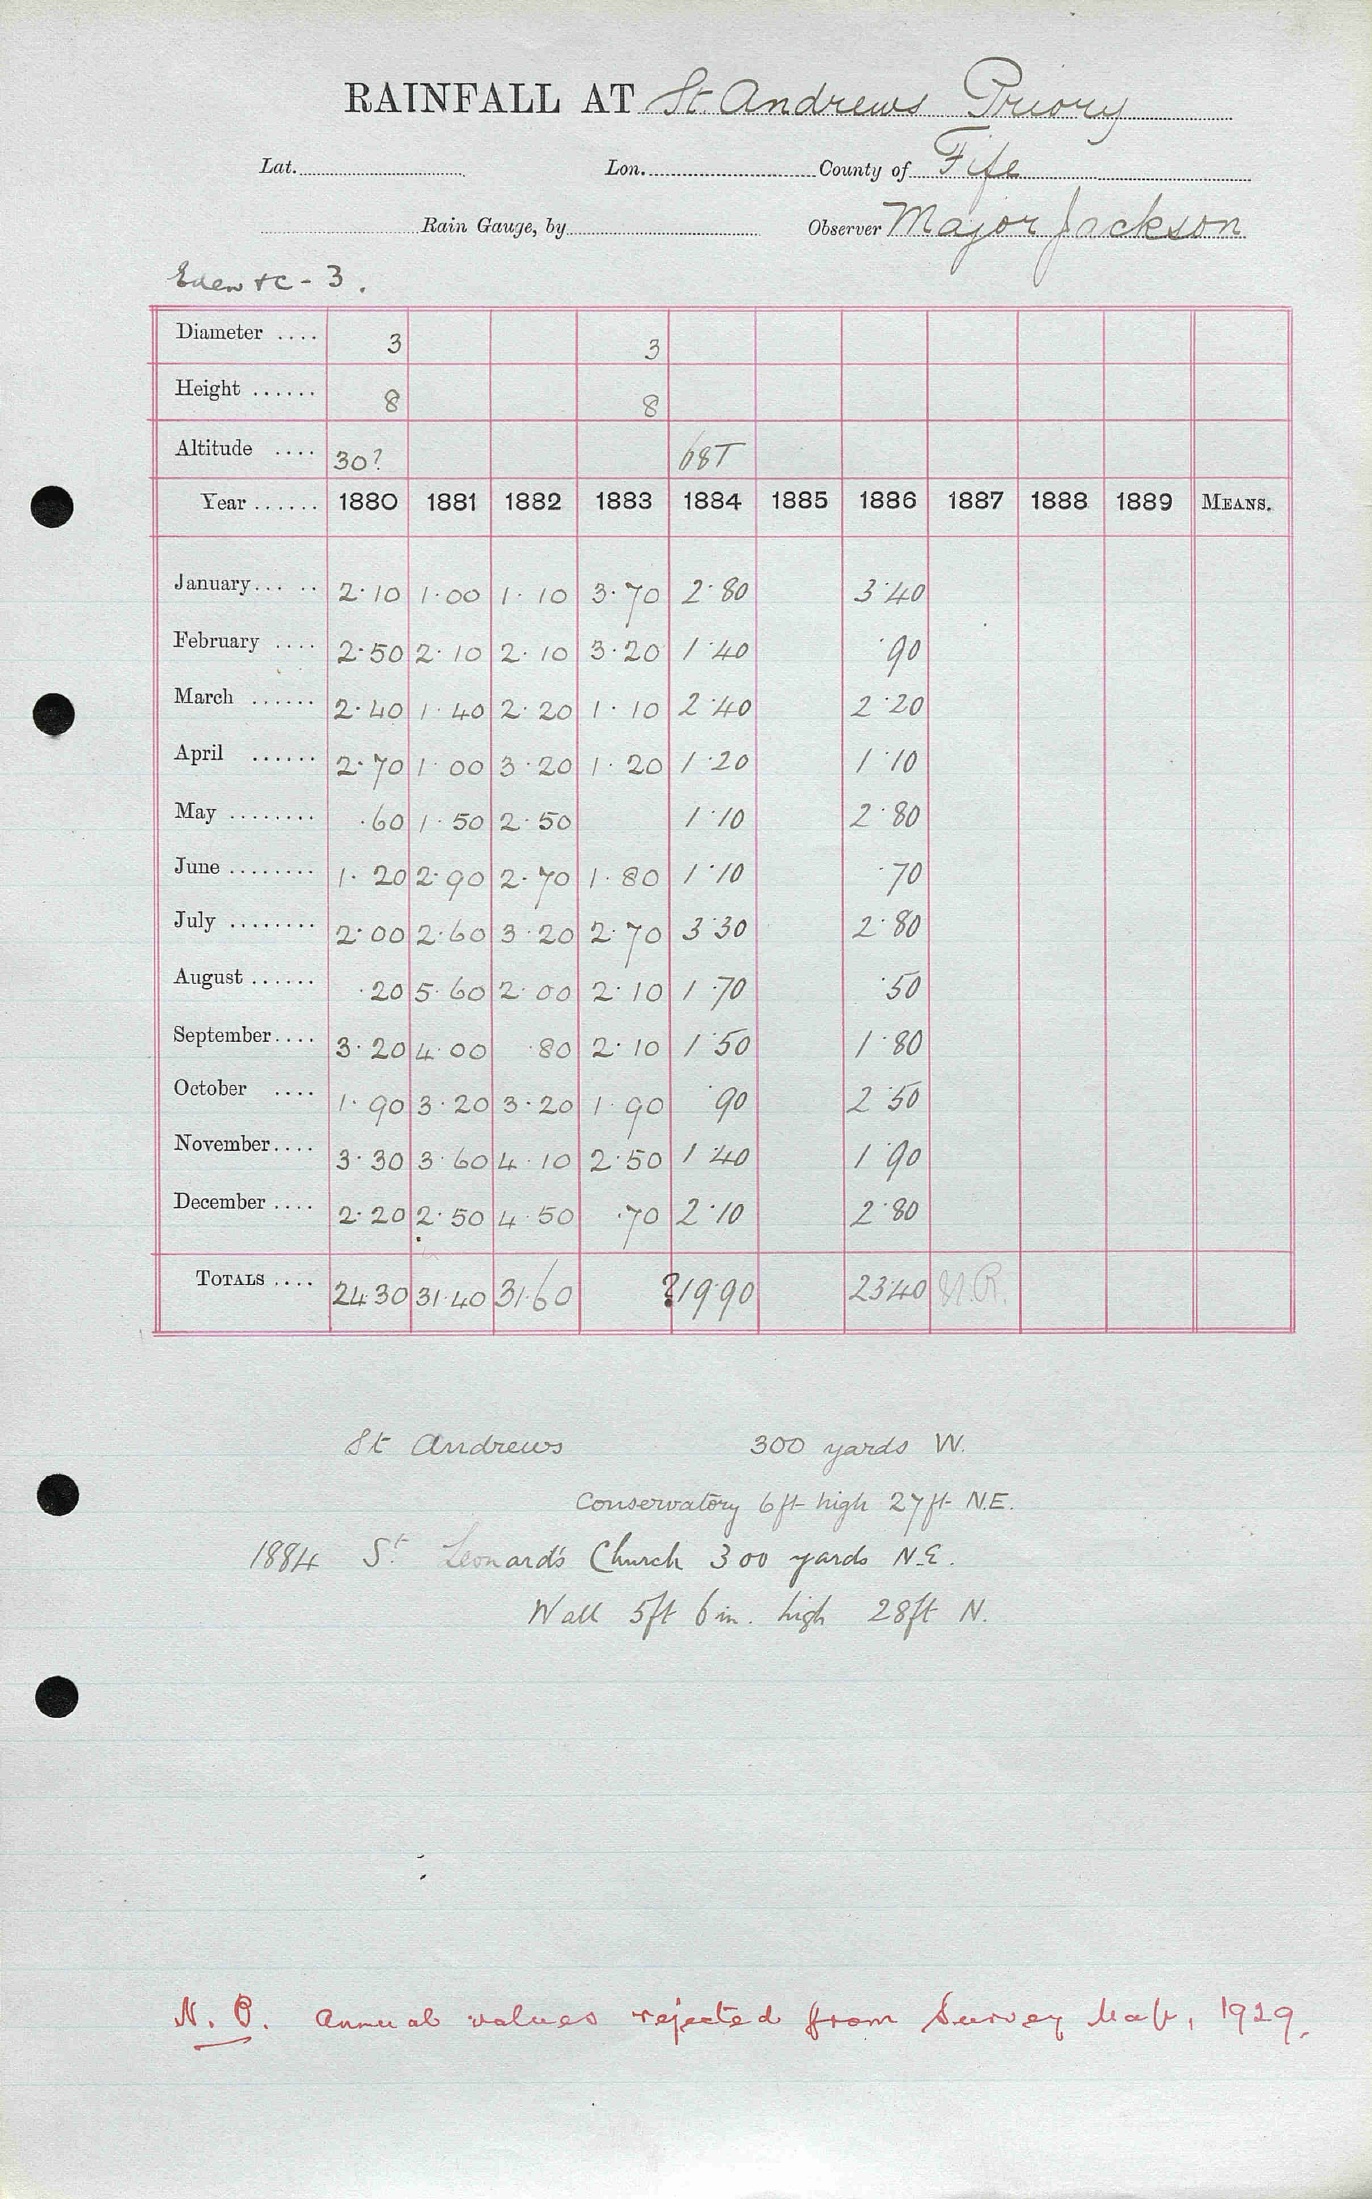 RAINFALL AT St Andrews Priory
Lat. Lon. County of Fife
Rain Gauge, by Observer Major Jackson
Eden &c - 3.
Diameter .... 3 3
Height ...... 8 8
Altitude .... 30? 68T
Year ...... 1880 1881 1882 1883 1884 1885 1886 1887 1888 1889 MEANS.
January... .. 2.10 1.00 1.10 3.70 2.80 3.40
February .... 2.50 2.10 2.10 3.20 1.40 .90
March ...... 2.40 1.40 2.20 1.10 2.40 2.20
April ...... 2.70 1.00 3.20 1.20 1.20 1.10
May ........ .60 1.50 2.50 1.10 2.80
June ........ 1.20 2.90 2.70 1.80 1.10 .70
July ........ 2.00 2.60 3.20 2.70 3.30 2.80
August ...... .20 5.60 2.00 2.10 1.70 .50
September.... 3.20 4.00 .80 2.10 1.50 1.80
October .... 1.90 3.20 3.20 1.90 .90 2.50
November.... 3.30 3.60 4.10 2.50 1.40 1.90
December .... 2.20 2.50 4.50 .70 2.10 2.80
TOTALS .... 24.30 31.40 31.60 ?19.90 23.40 N.R.
St Andrews 300 yards W.
Conservatory 6ft high 27ft N.E.
1884 St Leonard's Church 300 yards N.E.
Wall 5ft 6in. high 28ft N.
N.B. Annual values rejected from Survey Map, 1929.